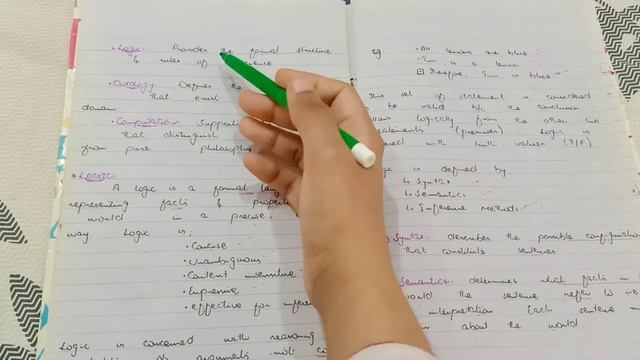 • Logic. Provides formal structure
& rules of
• Ontology Defines the
that exist
domain
• Computation Supports
that distinguish
from pure philosoph
• Logic
A logic is a formal lang
representing facts & propert
world in a precise,
way. Logic is,
• Concise
• Unambiguous
• Context insensitive
• Expressive
• effective for infere
Logic is concerned with reasoning
arguments not
eg. • All lemons are blue
• Tim is a lemon
Therefore, Tim is blue
This set of statement is considered
be valid b/c the conclusion
logically from the other two
statements (premises). Logic is
with truth values (T/F).
is defined by.
↳ Syntax
↳ Semantics
↳ Inference Methods
Syntax describes the possible configuration
that constitute sentences
Semantics determines what facts in
world the sentence refer to ie
interpretation Each sentence m
about the world